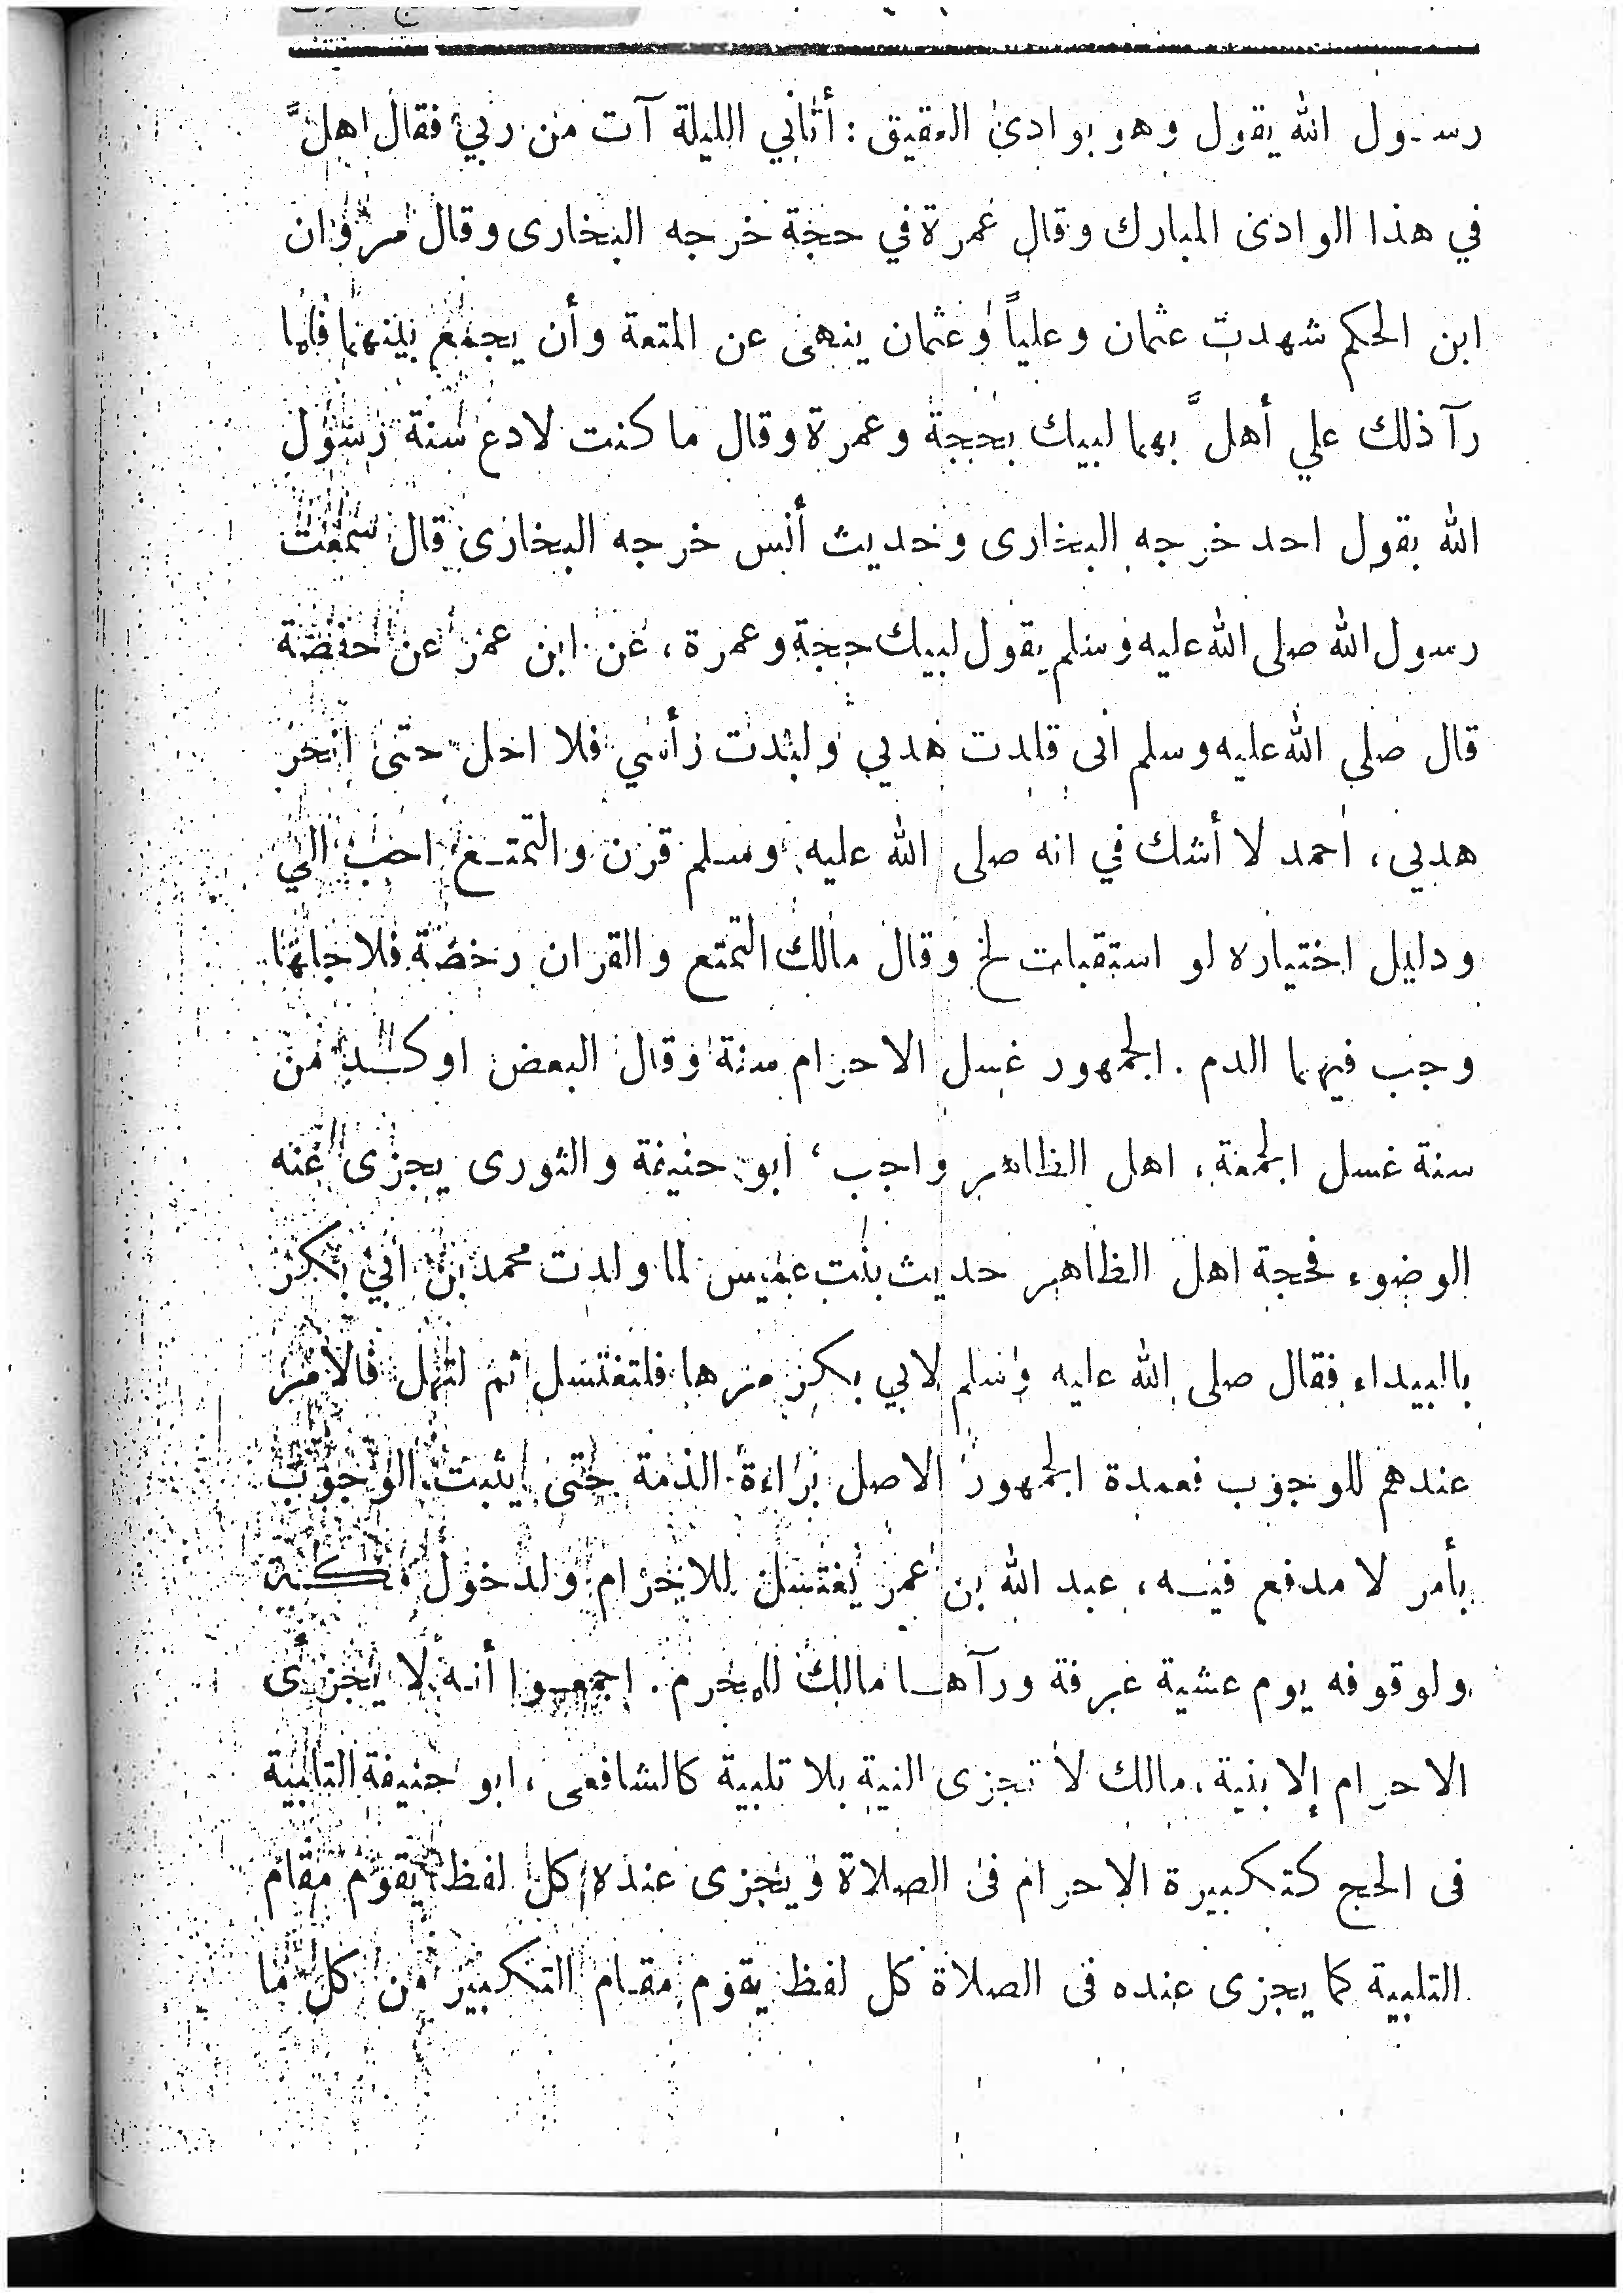 رسول الله يقول وهو بوادى العقيق : أتاني الليلة آت من ربي فقال اهلَّ
في هذا الوادى المبارك وقال عمرة في حجة خرجه البخارى وقال مروان
ابن الحكم شهدت عثمان وعلياً وعثمان ينهى عن المتعة وأن يجمع بينهما فلما
رآ ذلك علي أهلَّ بهما لبيك بحجة وعمرة وقال ما كنت لادع سنة رسول
الله بقول احد خرجه البخارى وحديث أنس خرجه البخارى قال سمعت
رسول الله صلى الله عليه وسلم يقول لبيك حجة وعمرة ، عن ابن عمر عن حفصة
قال صلى الله عليه وسلم انى قلدت هديي ولبدت رأسي فلا احل حتى انحر
هديي ، احمد لا أشك في انه صلى الله عليه وسلم قرن والتمتع احب الي
ودليل اختياره لو استقبلت لخ وقال مالك التمتع والقران رخصة فلاجلها
وجب فيهما الدم . الجمهور غسل الاحرام سنة وقال البعض اوكد من
سنة غسل الجمعة ، اهل الظاهر واجب ، ابو حنيفة والثورى يجزى عنه
الوضوء فحجة اهل الظاهر حديث بنت عميس لما ولدت محمد بن ابي بكر
بالبيداء فقال صلى الله عليه وسلم لابي بكر مرها فلتغتسل ثم لتهل فالامر
عندهم للوجوب فعمدة الجمهور الاصل براءة الذمة حتى يثبت الوجوب
بأمر لا مدفع فيه ، عبد الله بن عمر يغتسل للاحرام ولدخول مكة
ولوقوفه يوم عشية عرفة ورآها مالك للمحرم . اجمعوا أنه لا يجزى
الاحرام إلا بنية ، مالك لا تجزى النية بلا تلبية كالشافعى ، ابو حنيفة التلبية
فى الحج كتكبيرة الاحرام فى الصلاة ويجزى عنده كل لفظ يقوم مقام
التلبية كما يجزى عنده فى الصلاة كل لفظ يقوم مقام التكبير من كل ما